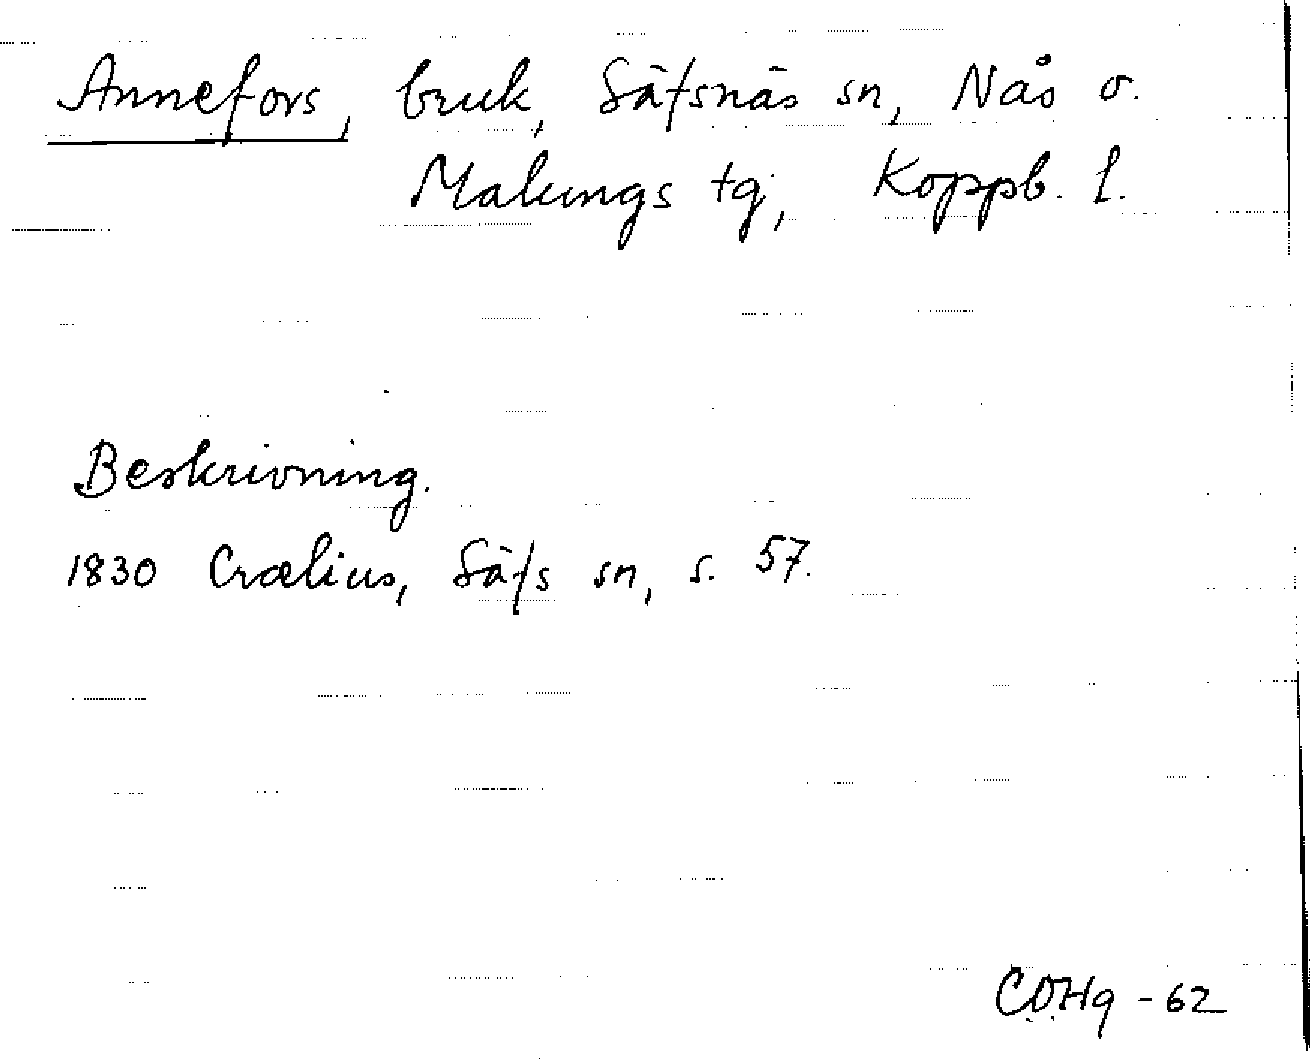 Annefors, bruk, Säfsnäs sn, Nås o.
Malungs tg, Koppb. l.
Beskrivning.
1830 Crælius, Säfs sn, s. 57.
C.O.Hg - 62